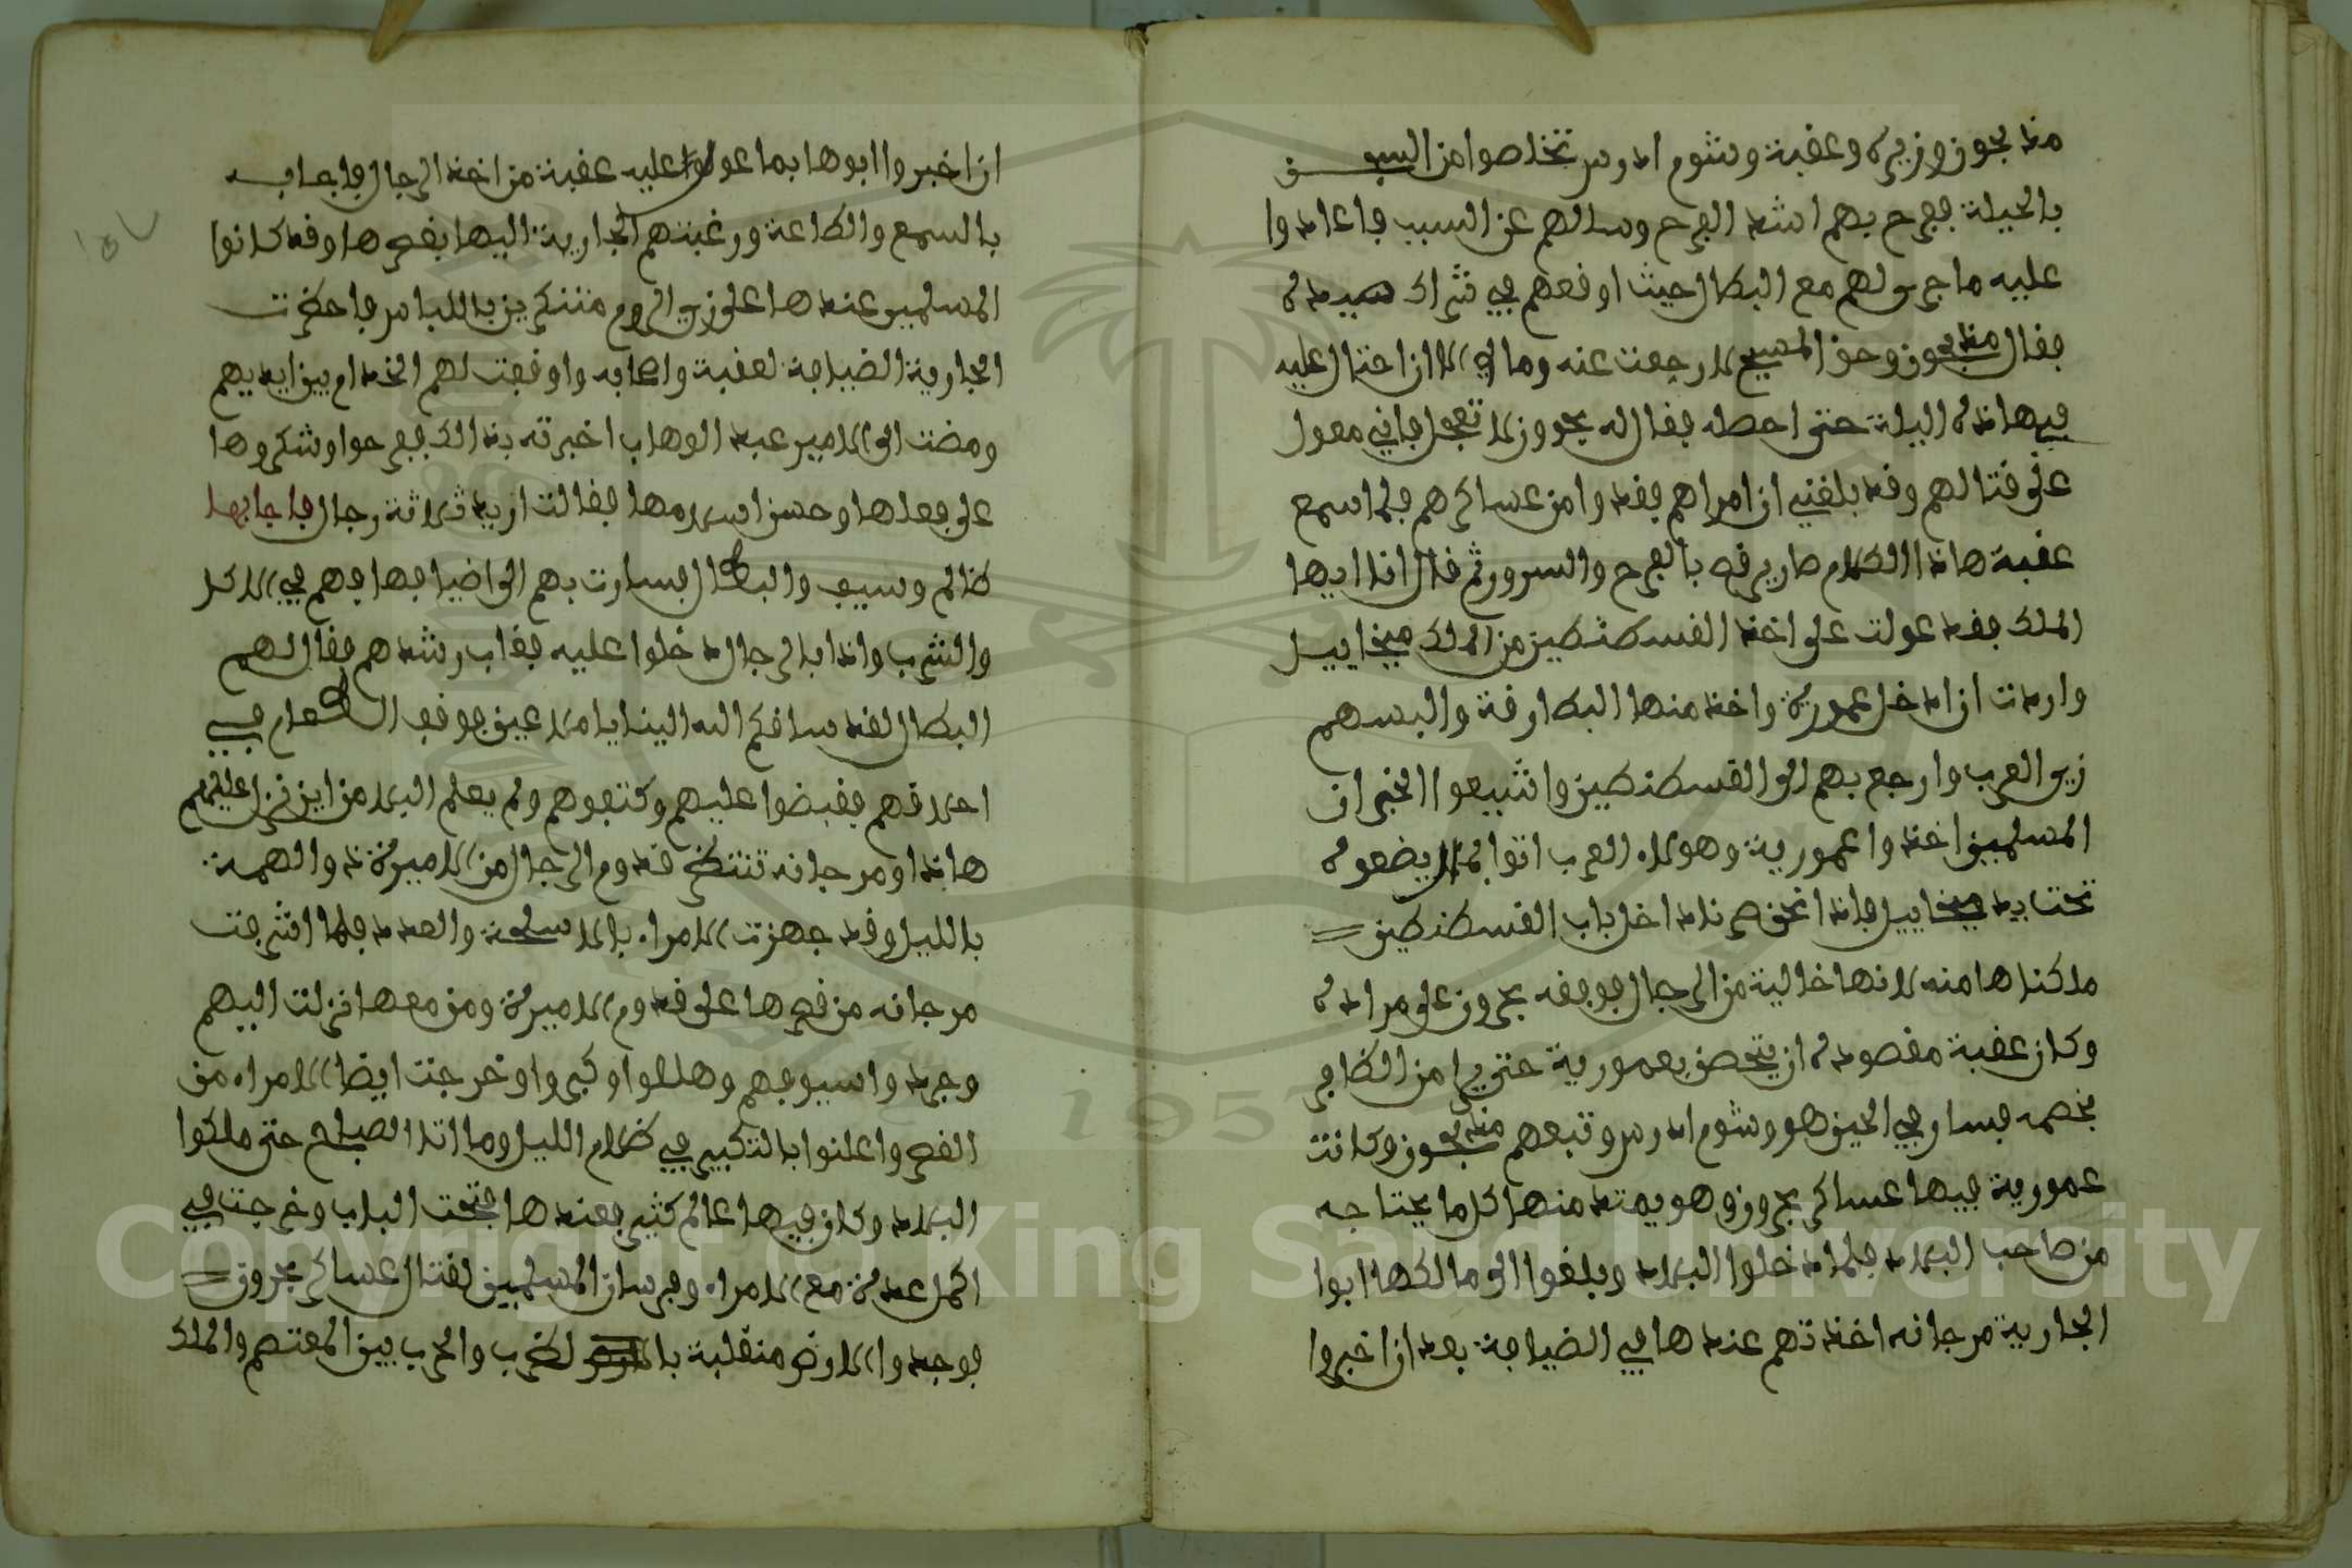 منه بحرون وزيره وعقبة وشوم ادرس تخلصوا من السيف
بالحيلة ففرح بهم اشد الفرح وسالهم عن السبب فاعادوا
عليه ما جرى لهم مع البطال حيث اوقعهم في شراك صيده
فقال وحق المسيح لا رجعت عنه ومالي الا ان احتال عليه
في هاذه اليلة حتى احصله فقال له بحرون لا تعجل فاني معول
على قتالهم وقد بلغني ان امراهم فقدوا من عساكرهم فلما سمع
عقبة هاذا الكلام صار يرقص بالفرح والسرور ثم قال انا ايها
الملك فقد عولت على اخذ القسطنطين من الملك ميخاييل
واردت ان ادخل عمورية واخذ منها البطارقة والبسهم
زي العرب وارجع بهم الى القسطنطين واشيعوا الخبر ان
المسلمين اخذوا عمورية وهولاء العرب اتوا بهم ليضعوه
تحت يد ميخاييل فاذا نحن صرنا داخل باب القسطنطين
ملكناها منه لانها خالية من الرجال فوفقه بحرون على مراده
وكان عقبة مقصوده ان يتحصن بعمورية حتى يامن الكافر
بخصمه فسار في الحين هو وشوم ادرس وتبعهم وكانت
عمورية فيها عساكر بحرون وهو يمتد منها كل ما يحتاجه
من صاحب البلاد فلما دخلوا البلاد وبلغوا الى مالكها ابوا
الجارية مرجانه اخذتهم عندها في الضيافة بعد ان اخبروا
ان اخبروا ابوها بما عولوا عليه عقبة من اخذ الرجال فاجابه
بالسمع والطاعة ورغبتهم الجارية اليها بقصرها وقد كانوا
المسلمين عندها على زي الروم متنكرين باللباس فاحضرت
الجارية الضيافة لعقبة واصحابه واوقفت لهم الخدام بين ايديهم
ومضت الى الامير عبد الوهاب اخبرته بذالك ففرحوا وشكروها
على فعلها وحسن اسلامها فقالت اريد ثلاثة رجال فاجابها
ظالم وسيف والبطال فسارت بهم الى اضيافها فهم في الاكل
والشرب واذا بالرجال دخلوا عليه فغاب رشدهم فقال لهم
البطال لقد ساقكم الله الينا يا ملاعين فوقف الطعام في
احلاقهم فقبضوا عليهم وكتفوهم ولم يعلم البلا من اين نزل عليهم
هاذا ومرجانه تنتظر قدوم الرجال من الاميرة ذو الهمة
بالليل وقد جهزت الامراء بالاسلحة والعدد فلما اشرفت
مرجانه من قصرها على قدوم الاميرة ومن معها نزلت اليهم
وجردوا سيوفهم وهللوا وكبروا وخرجت ايضا الامراء من
القصر واعلنوا بالتكبير في ظلام الليل وما اتا الصباح حتى ملكوا
البلاد وكان فيها عالم كثير فعندها فتحت الباب وخرجت في
اكمل عدة مع الامراء وفرسان المسلمين لقتال عساكر بحرون
فوجدوا الارض منقلبة بالضرب والحرب بين المعتصم والملك